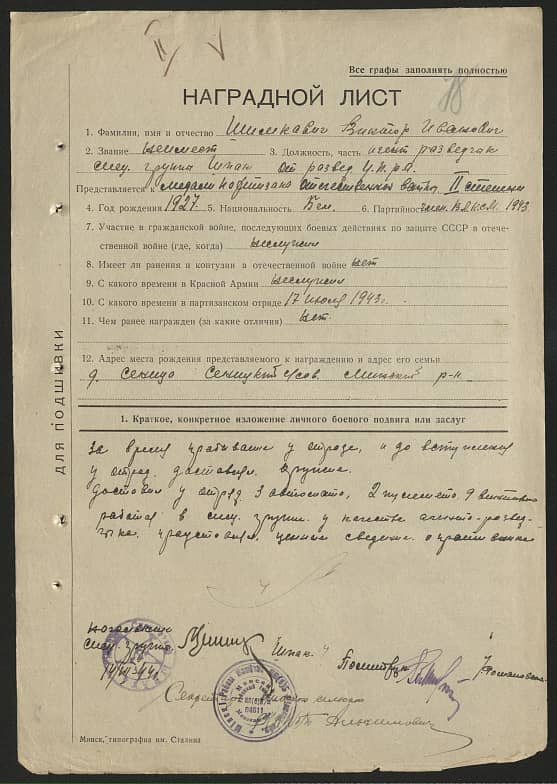 II V
Все графы заполнять полностью
78
НАГРАДНОЙ ЛИСТ
1. Фамилия, имя и отчество Шимкавич Виктор Иванович
2. Звание неимеет 3. Должность, часть агент разведчик
спец. группа Шпак
Представляется к медали партизана отечественны войны II степени
4. Год рождения 1927 5. Национальность Бел. 6. Партийность член ВЛКСМ. 1943.
7. Участие в гражданской войне, последующих боевых действиях по защите СССР в отече-
ственной войне (где, когда) неслужил
8. Имеет ли ранения и контузии в отечественной войне нет
9. С какого времени в Красной Армии неслужил
10. С какого времени в партизанском отряде 17 июля 1943г.
11. Чем ранее награжден (за какие отличия) нет.
12. Адрес места рождения представляемого к награждению и адрес его семьи
д. Сеница Сеницкий с/сов. Минский р-н.
ДЛЯ ПОДШИВКИ
1. Краткое, конкретное изложение личного боевого подвига или заслуг
За время у отраде, и до вступления
у отряд. доставлял оружие.
доставил у отряд 3 автомата, 2 пулемета 9 винтовок
работая в спец. группе у качестве агента-развед-
чика. ценные сведение о противнике
спец. группы Шпак.
14/VII-44г.
Минск, типография им. Сталина